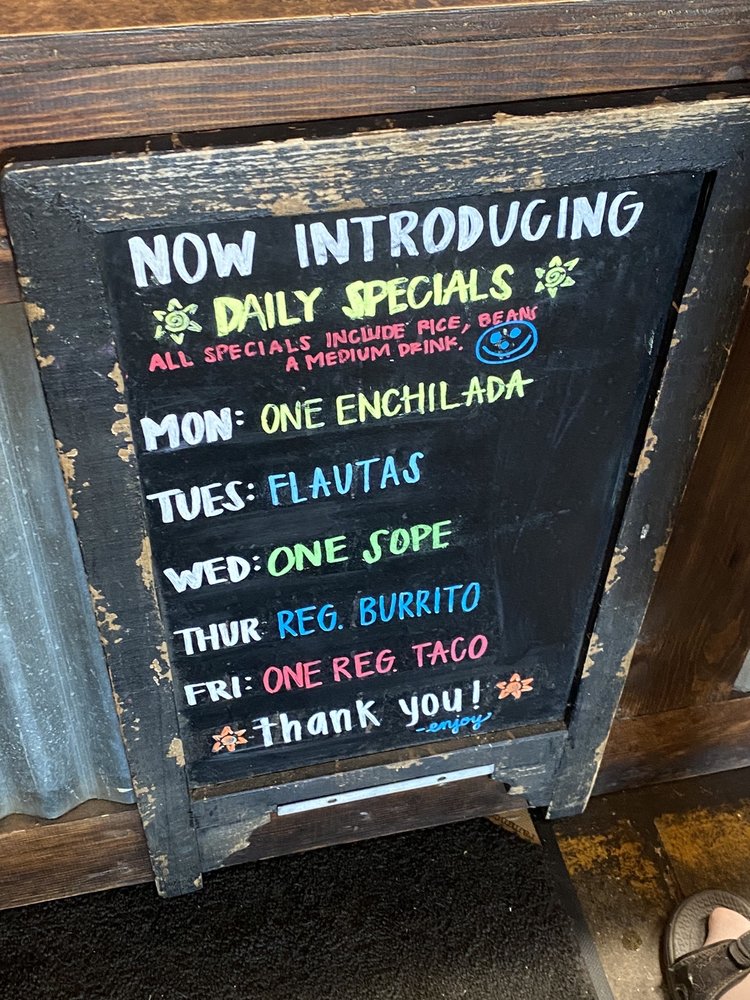 NOW INTRODUCING
DAILY SPECIALS
ALL SPECIALS INCLUDE RICE, BEANS
A MEDIUM DRINK.
MON: ONE ENCHILADA
TUES: FLAUTAS
WED: ONE SOPE
THUR REG. BURRITO
FRI: ONE REG. TACO
thank you!
-enjoy